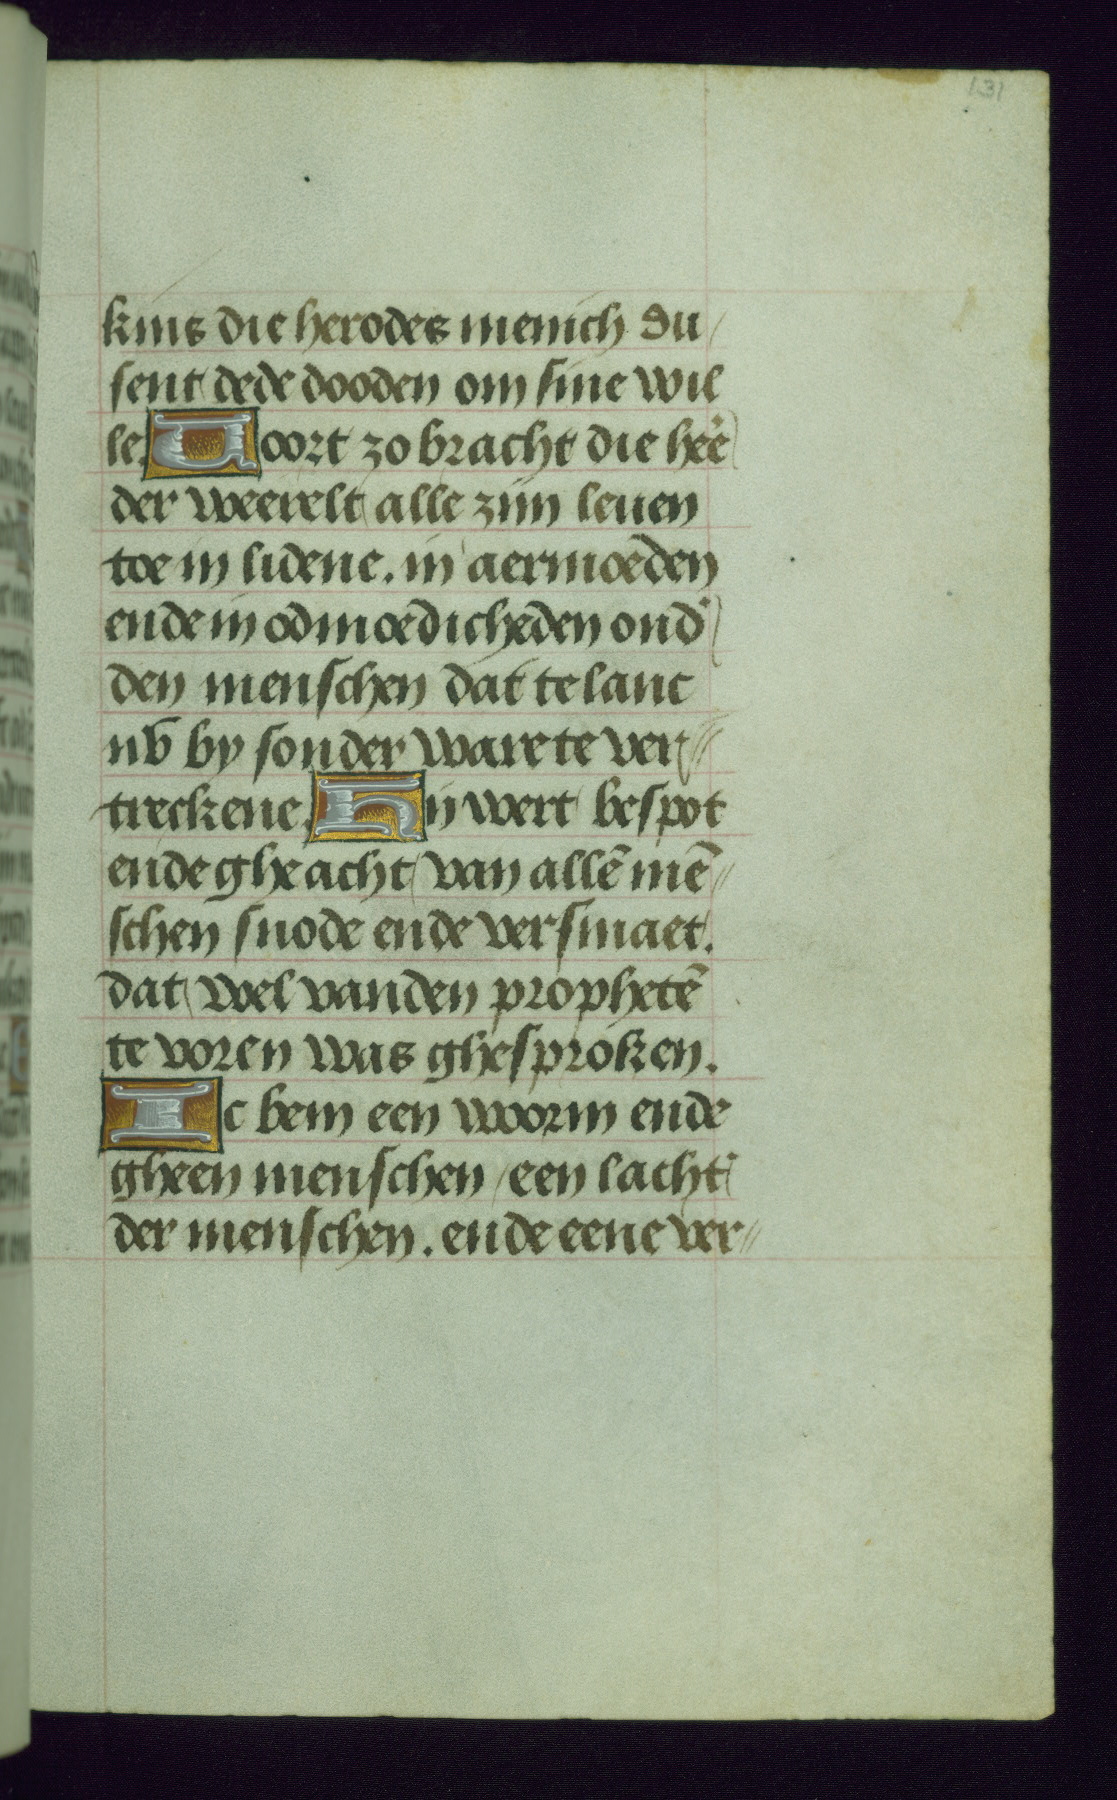 131
kins die herodes menich du
sent dede dooden om sine wil
le. Voort zo bracht die heē
der weerelt alle zijn leuen
toe in lidene. in aermoeden
ende in odmoedicheden ond'
den menschen dat te lanc
by sonder ware te ver
treckene. Hy wert bespot
ende gheacht van allē mē
schen snode ende versmaet.
dat wel vanden prophetē
te voren was ghesproken.
Ic bem een worm ende
gheen menschen een lacht'
der menschen. ende eene ver